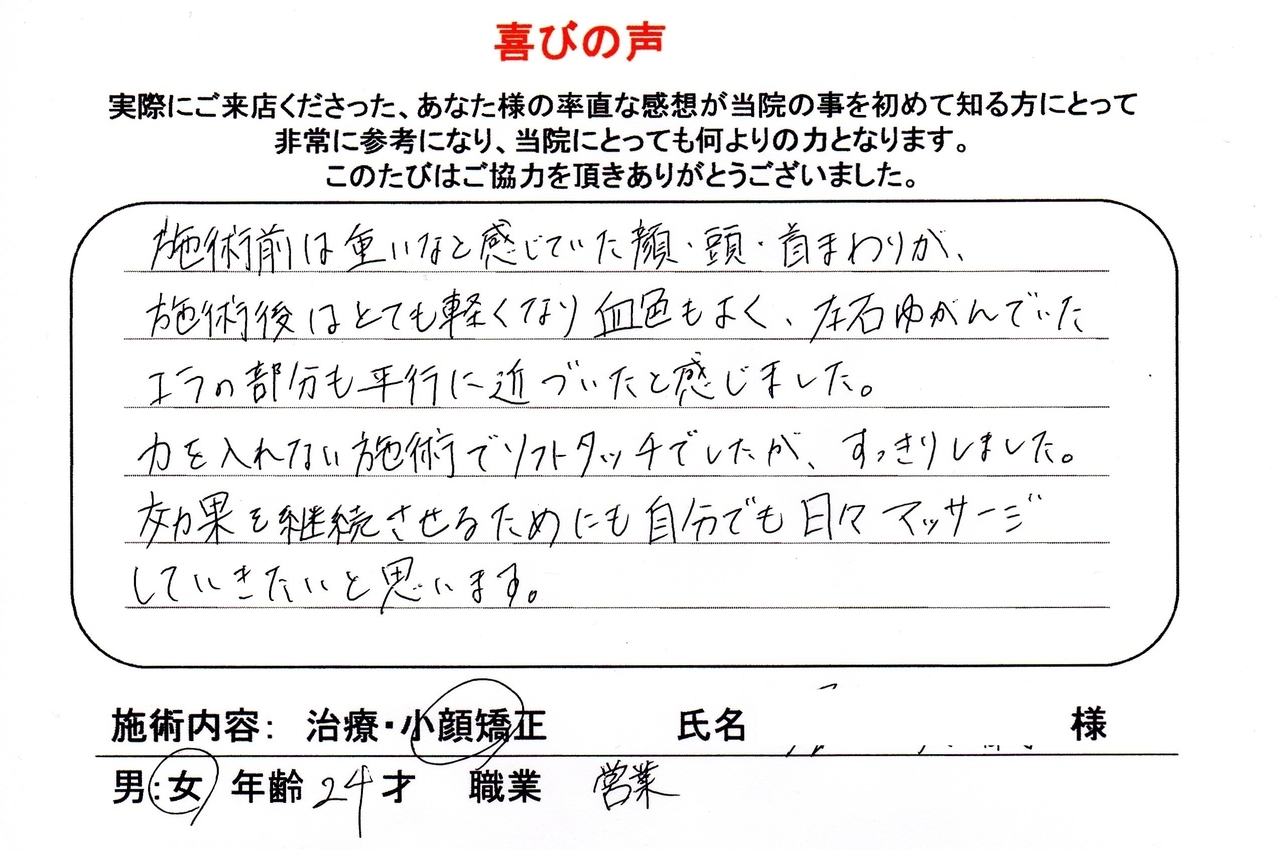 喜びの声
実際にご来店くださった、あなた様の率直な感想が当院の事を初めて知る方にとって
非常に参考になり、当院にとっても何よりの力となります。
このたびはご協力を頂きありがとうございました。
施術前は重いなと感じていた顔・頭・首まわりが、
施術後はとても軽くなり血色もよく、左右ゆがんでいた
エラの部分も平行に近づいたと感じました。
力を入れない施術でソフトタッチでしたが、すっきりしました。
効果を継続させるためにも自分でも日々マッサージ
していきたいと思います。
施術内容： 治療・小顔矯正 氏名 様
男：女 年齢 24 才 職業 営業